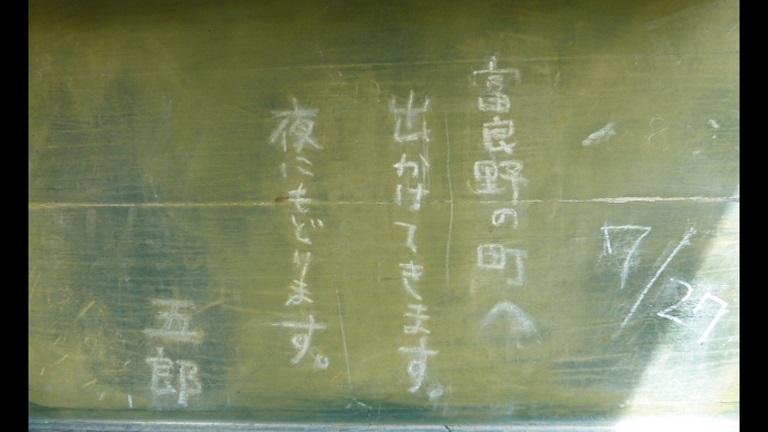 7/27
富良野の町へ
出かけてきます。
夜にもどります。
五郎